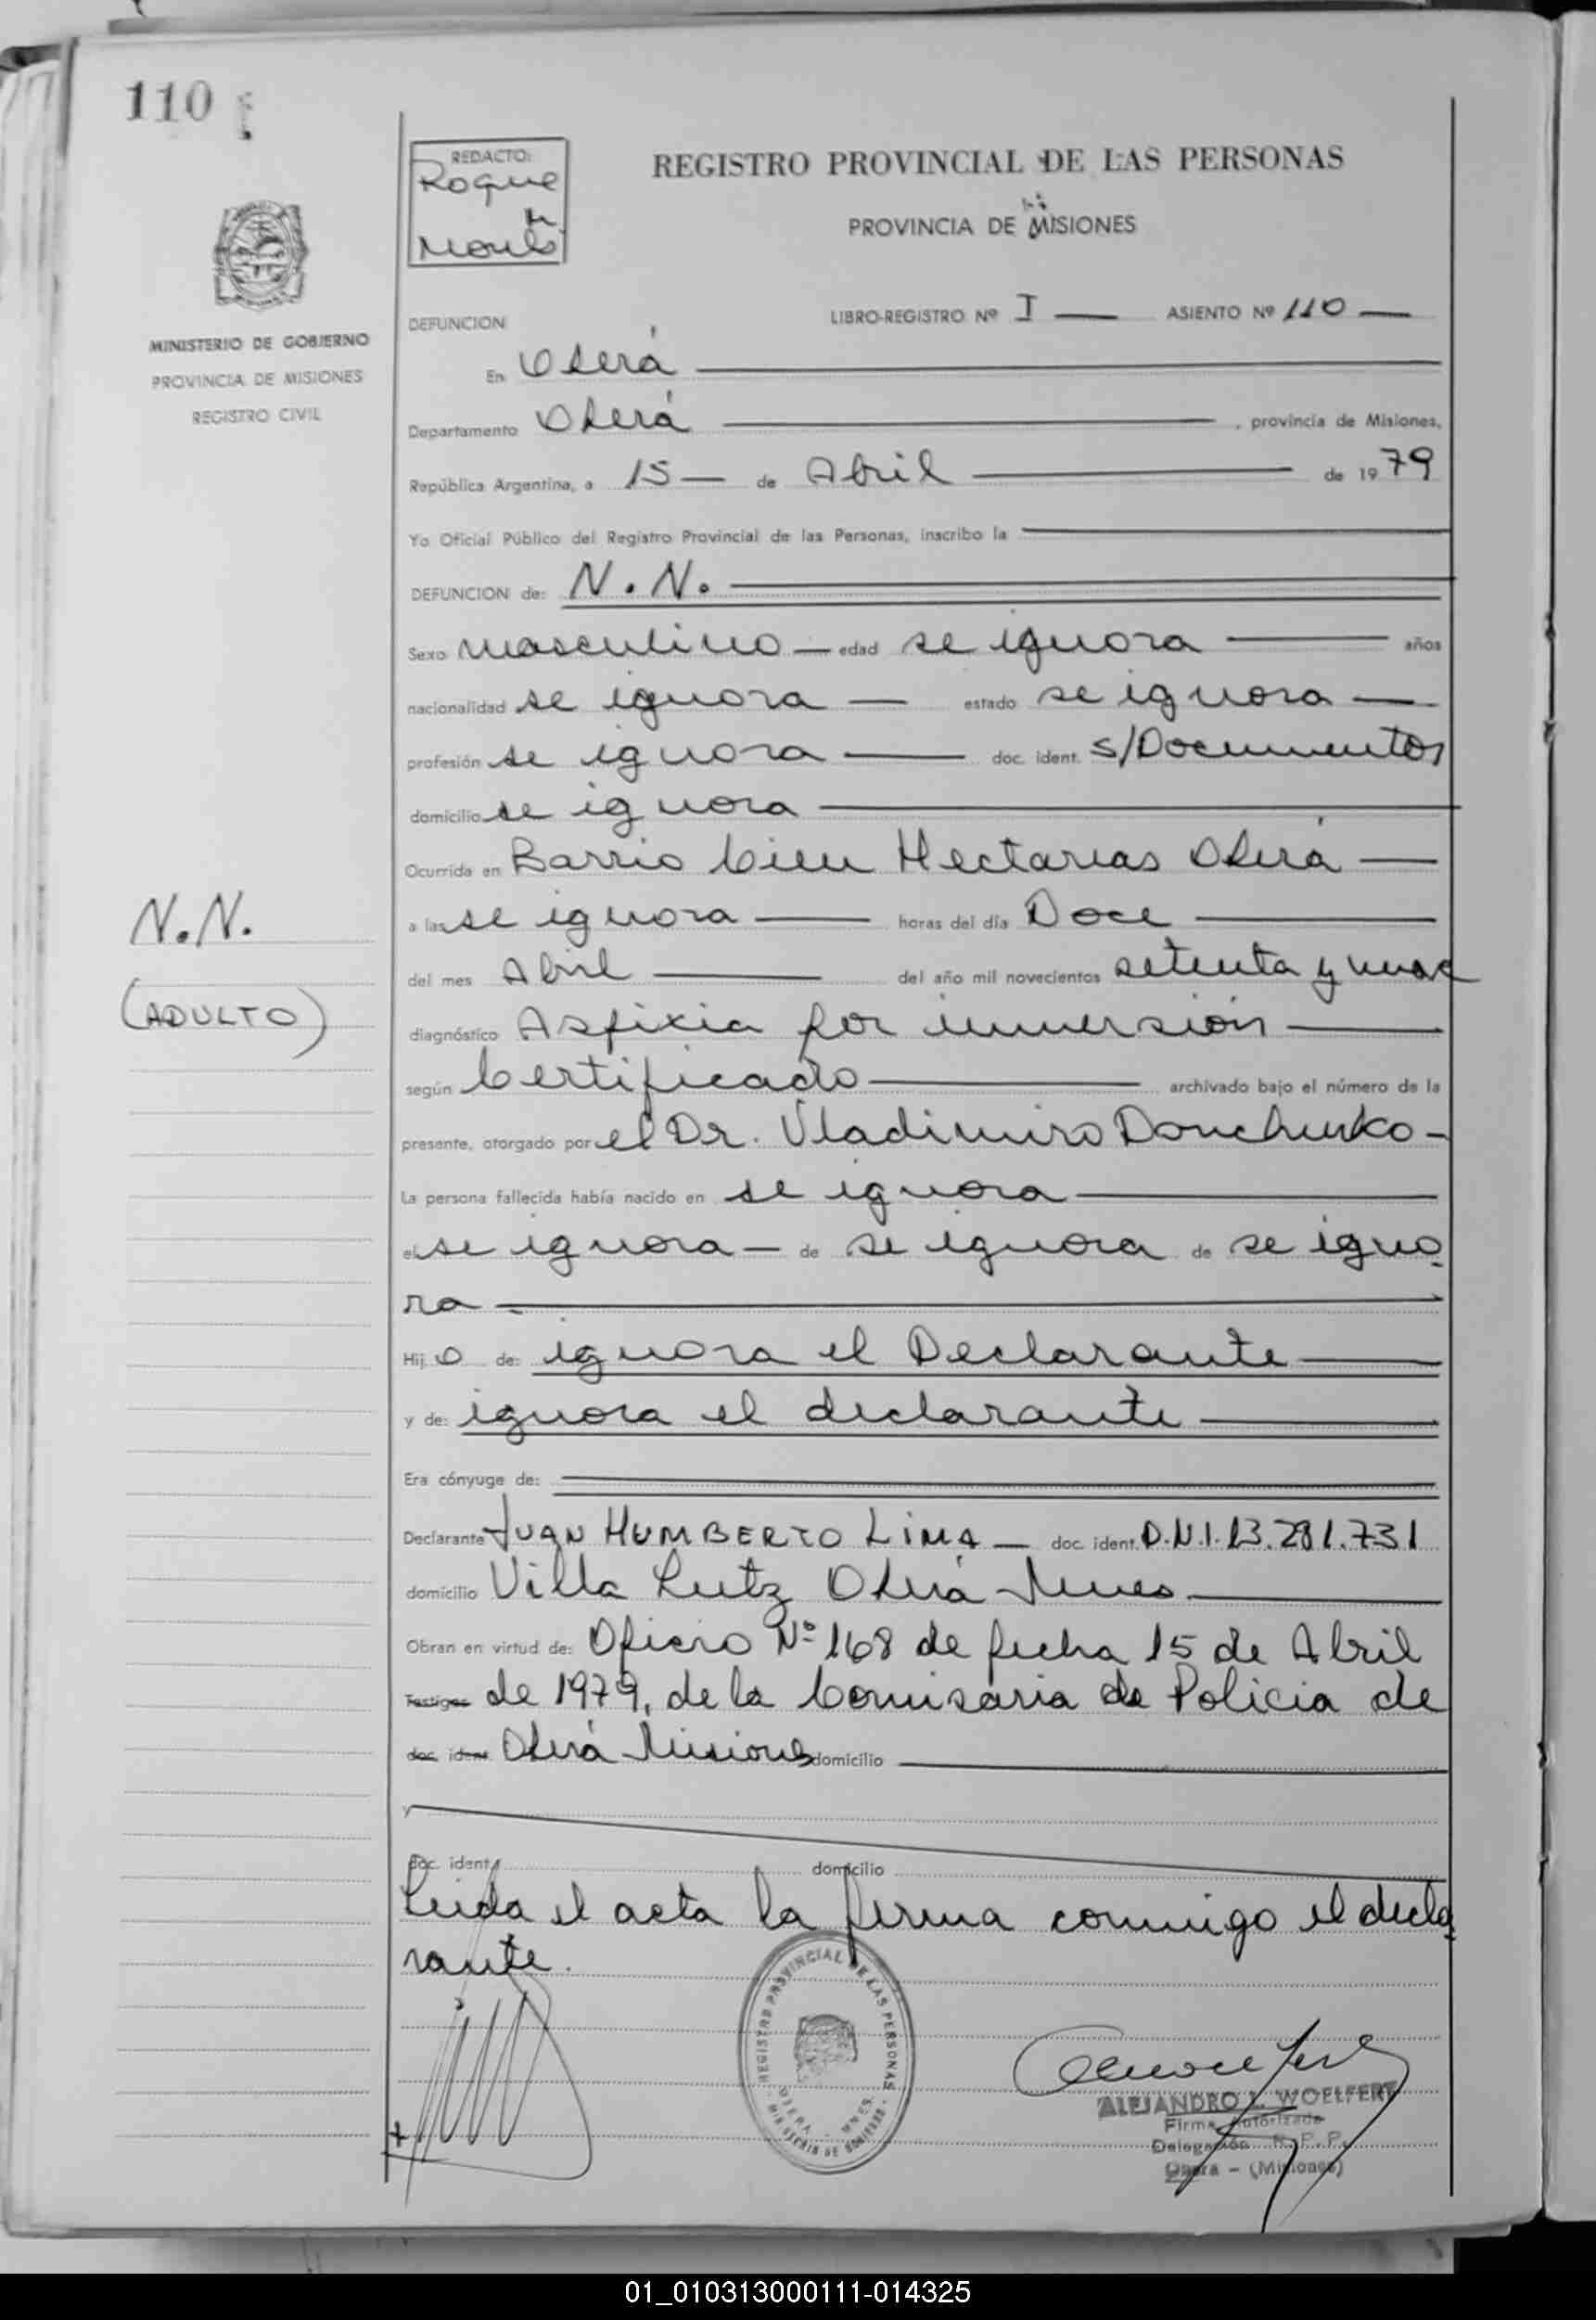 110
REDACTO:
Roque
REGISTRO PROVINCIAL DE LAS PERSONAS
PROVINCIA DE MISIONES
MINISTERIO DE GOBIERNO
PROVINCIA DE MISIONES
REGISTRO CIVIL
DEFUNCION
LIBRO-REGISTRO Nº I ASIENTO Nº 110
En Oberá
Departamento Oberá , provincia de Misiones,
República Argentina, a 15 de Abril de 1979
Yo Oficial Público del Registro Provincial de las Personas, inscribo la
DEFUNCION de: N.N.
Sexo masculino edad se ignora años
nacionalidad se ignora estado se ignora
profesión se ignora doc. ident. s/Documentos
domicilio se ignora
Ocurrida en Barrio Cien Hectarias Oberá
N.N.
(ADULTO)
a las se ignora horas del día Doce
del mes Abril del año mil novecientos setenta y nueve
diagnóstico Asfixia por inmersión
según Certificado archivado bajo el número de la
presente, otorgado por el Dr. Vladimiro Donchenko
La persona fallecida había nacido en se ignora
el se ignora de se ignora de se igno
ra
Hijo de: ignora el Declarante
y de: ignora el declarante
Era cónyuge de:
Declarante JUAN HUMBERTO LIMA doc. ident. D.N.I. 13.281.731
domicilio Villa Lutz Oberá Mnes
Obran en virtud de: Oficio Nº 168 de fecha 15 de Abril
Testigos de 1979, de la Comisaria de Policia de
doc. ident. Oberá Misiones domicilio
y
doc. ident. domicilio
Leida el acta la firma conmigo el decla
rante.
REGISTRO PROVINCIAL DE LAS PERSONAS
OBERA - MNES.
MINISTERIO DE GOBIERNO
ALEJANDRO L. WOELFERT
Firma Autorizada
Delegación R.P.P.
Oberá - (Misiones)
01_010313000111-014325